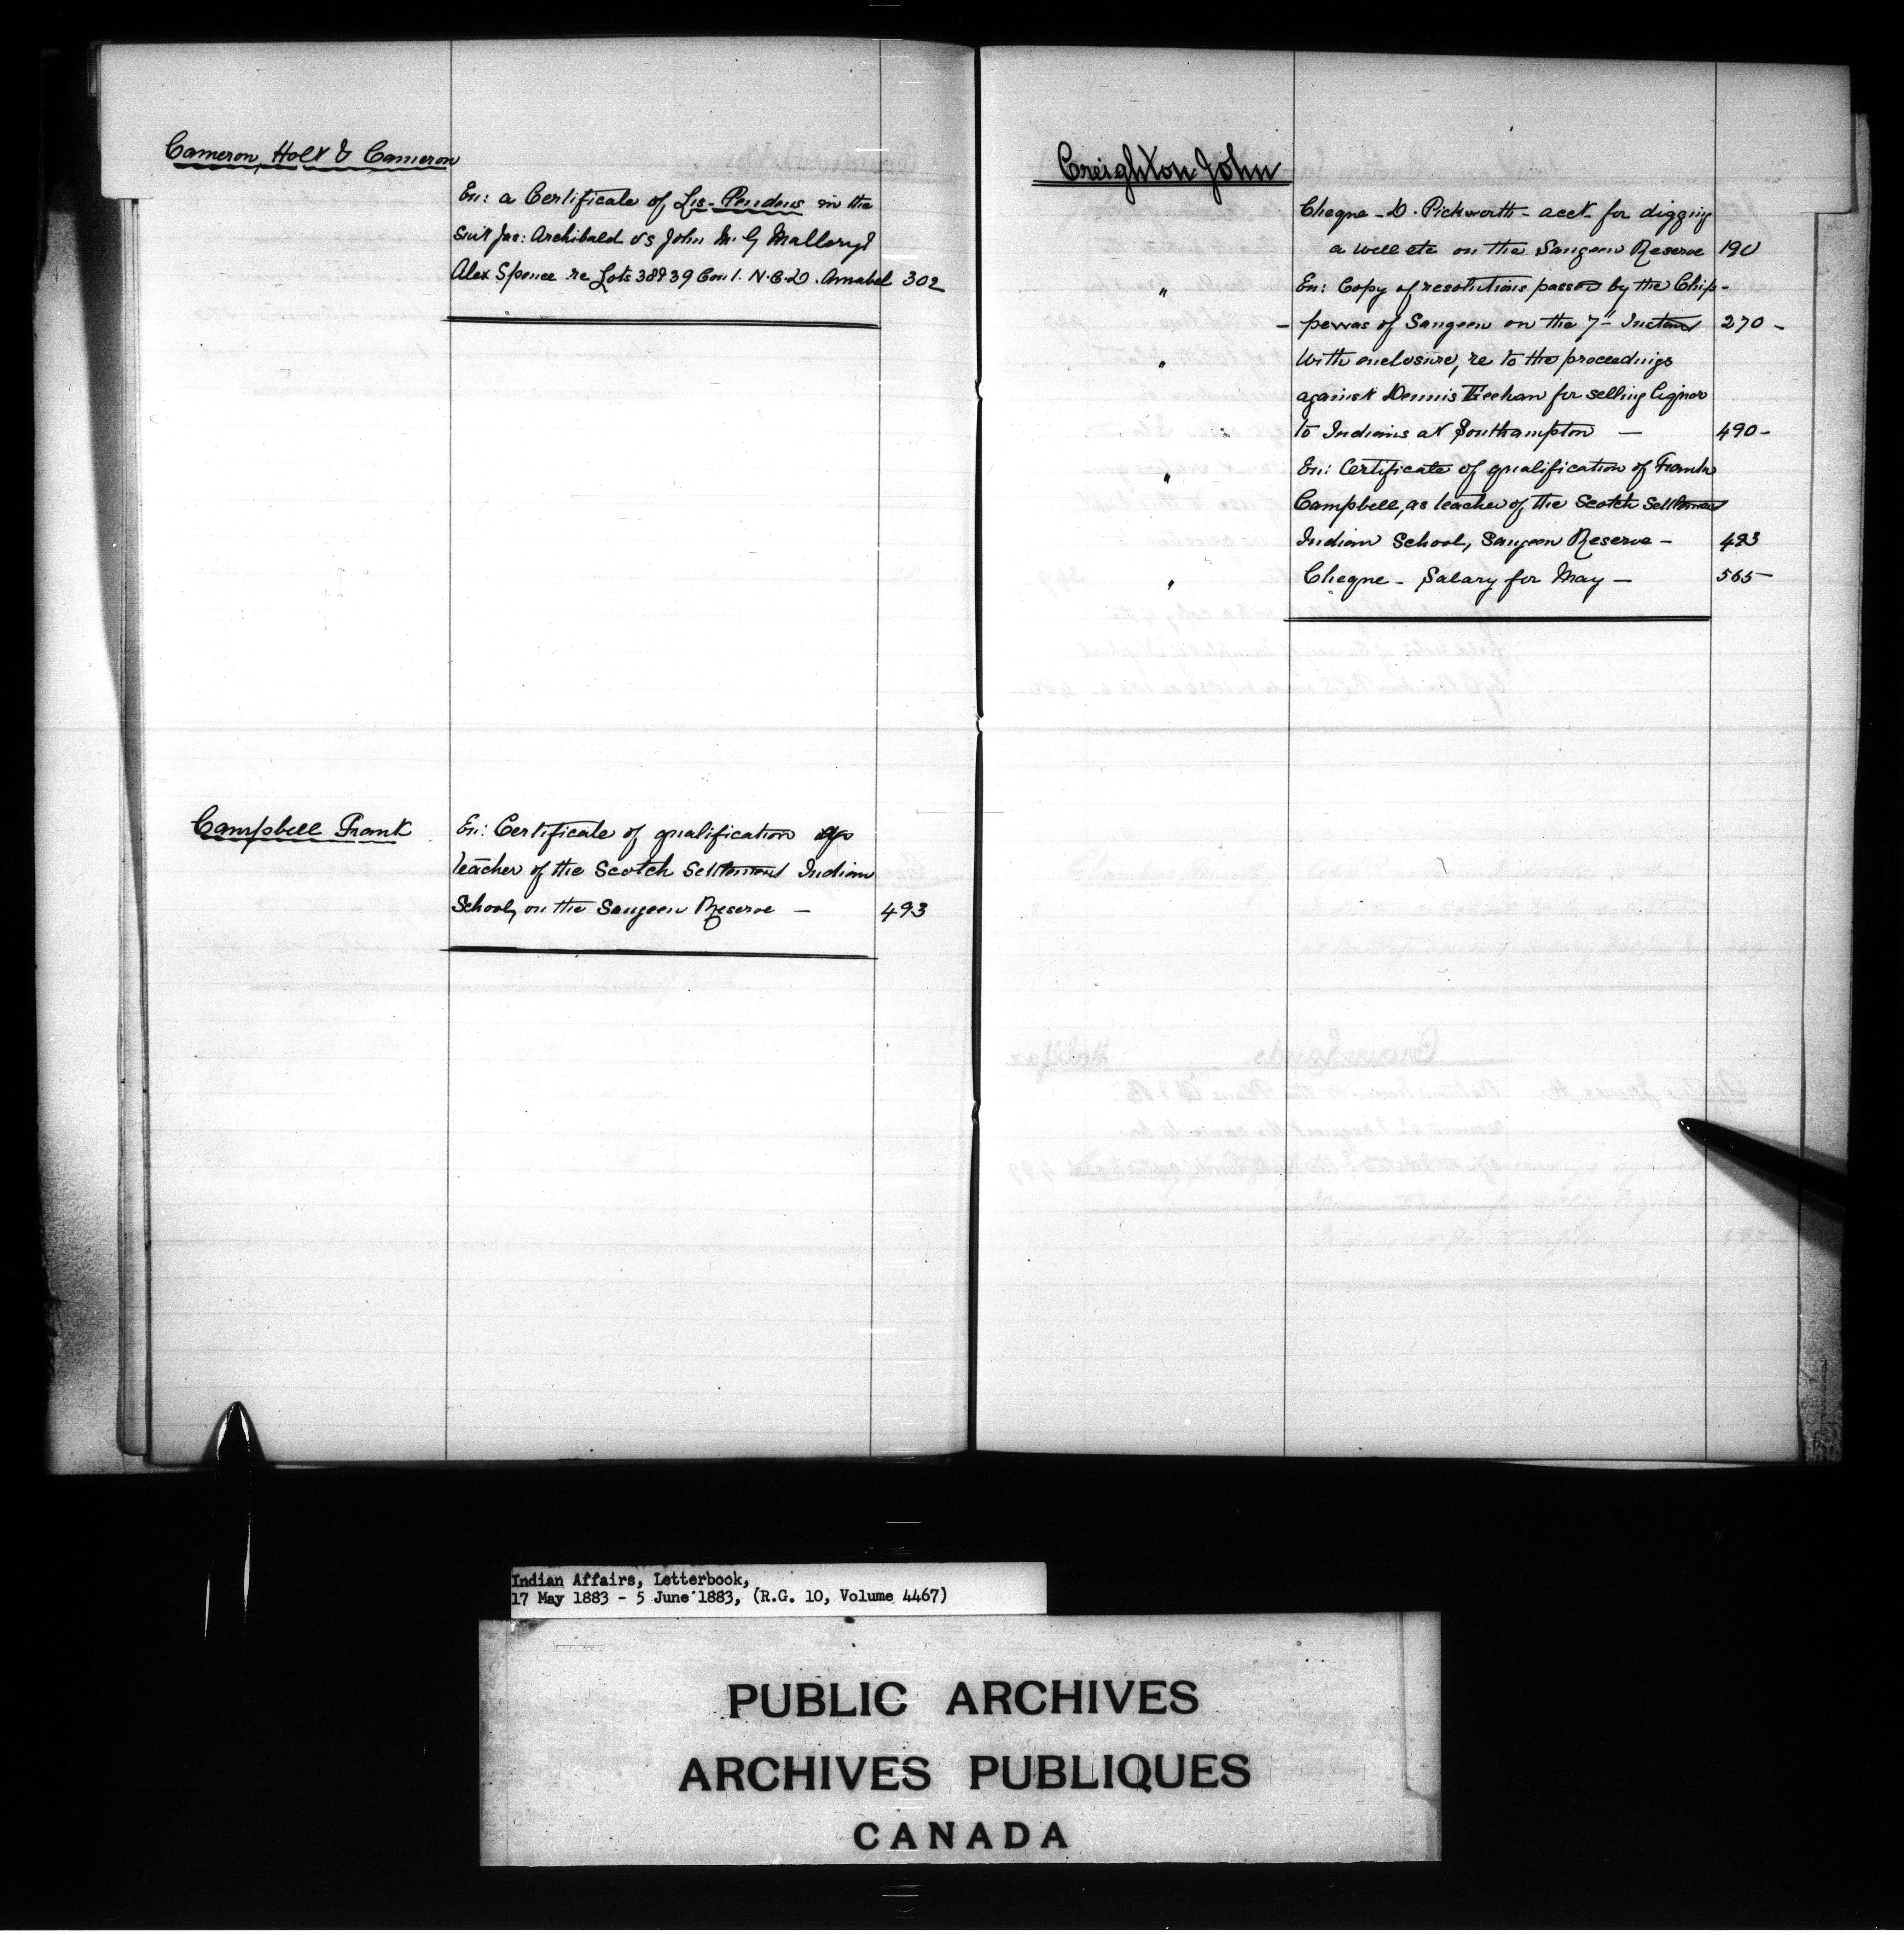 Cameron, Holt & Cameron
En: a Certificate of Lis-Pendens in the
suit Jas: Archibald vs John M. G Mallory &
Alex Spence re Lots 38 & 39 Con 1. N.C.D. Amabel 302
Campbell Frank
En: Certificate of qualification as
teacher of the Scotch Settlement Indian
School, on the Saugeen Reserve — 493
Creighton John
Cheque - D. Pickworth - acct for digging
a well etc on the Saugeen Reserve 190
" En: Copy of resolutions passed by the Chip-
- pewas of Saugeen on the 7" Instant 270 -
" With enclosure, re to the proceedings
against Dennis Feehan for selling liquor
to Indians at Southampton — 490 -
" En: Certificate of qualification of Frank
Campbell, as teacher of the Scotch Settlement
Indian School, Saugeen Reserve - 493
" Cheque - Salary for May — 565 -
Indian Affairs, Letterbook,
17 May 1883 - 5 June 1883, (R.G. 10, Volume 4467)
PUBLIC ARCHIVES
ARCHIVES PUBLIQUES
CANADA